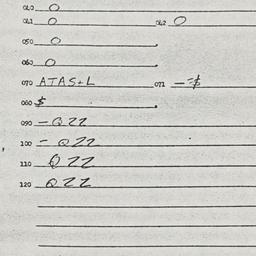 040 O
041 O 042 O
050 O
060 O
070 ATAS+L 071
080 $
090 - QZZ
100 - QZZ
110 QZZ
120 QZZ